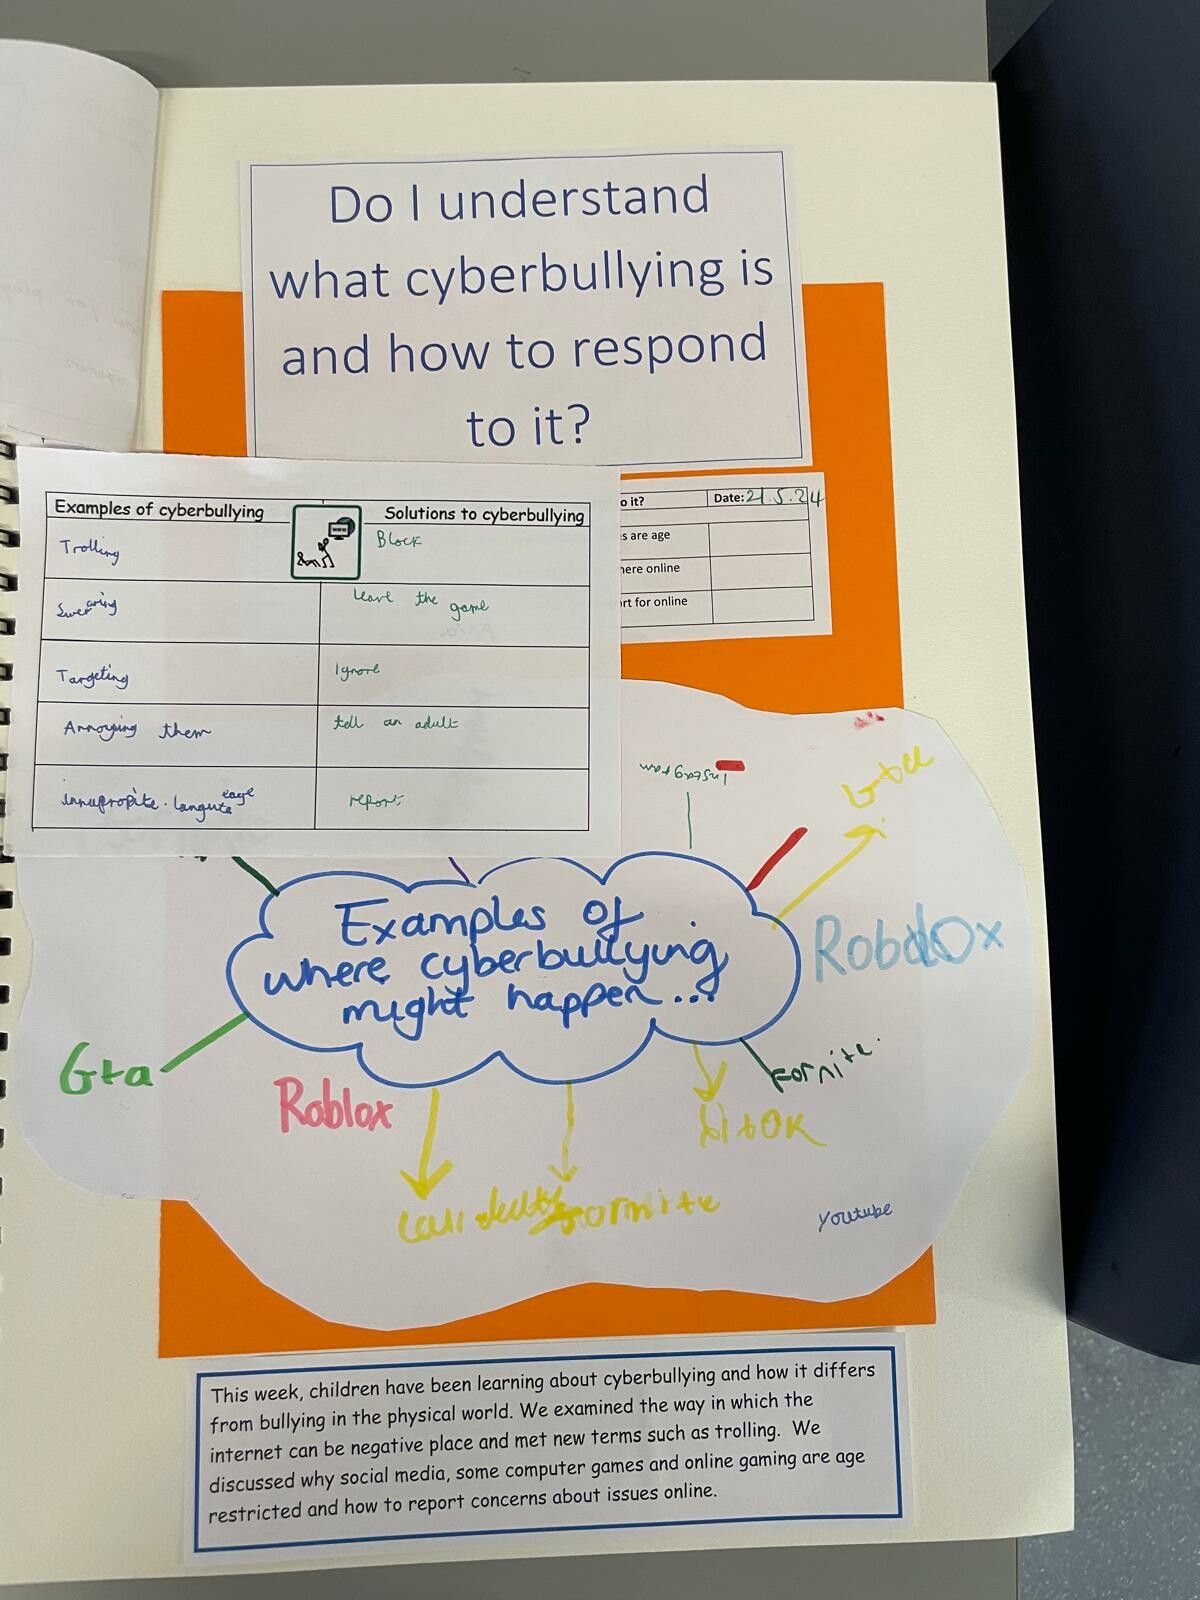 Do I understand
what cyberbullying is
and how to respond
to it?
Examples of cyberbullying
Solutions to cyberbullying
www
Trolling
Block
Swearing
Leave the game
Targeting
Ignore
Annoying them
tell an adult
report
o it?
Date: 21.5.24
s are age
here online
rt for online
Instagram
Examples of
where cyberbullying
might happen...
Gta
Roblox
Fornite.
Fornite
youtube
This week, children have been learning about cyberbullying and how it differs
from bullying in the physical world. We examined the way in which the
internet can be negative place and met new terms such as trolling. We
discussed why social media, some computer games and online gaming are age
restricted and how to report concerns about issues online.